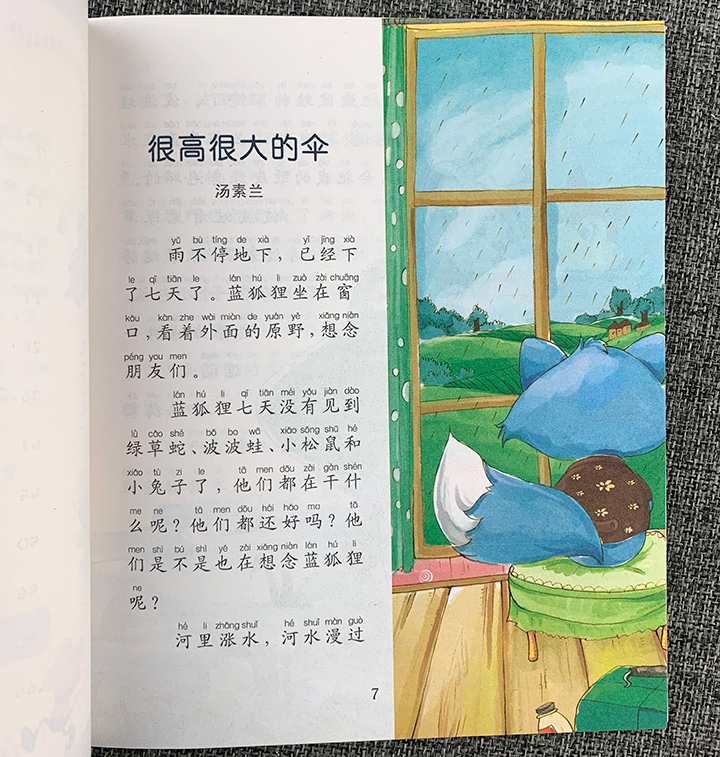 很高很大的伞
汤素兰
yǔ bù tíng de xià yǐ jīng xià
雨不停地下，已经下
le qī tiān le lán hú li zuò zài chuāng
了七天了。蓝狐狸坐在窗
kǒu kàn zhe wài miàn de yuán yě xiǎng niàn
口，看着外面的原野，想念
péng you men
朋友们。
lán hú li qī tiān méi yǒu jiàn dào
蓝狐狸七天没有见到
lǜ cǎo shé bō bo wā xiǎo sōng shǔ hé
绿草蛇、波波蛙、小松鼠和
xiǎo tù zi le tā men dōu zài gàn shén
小兔子了，他们都在干什
me ne tā men dōu hái hǎo ma tā
么呢？他们都还好吗？他
men shì bú shì yě zài xiǎng niàn lán hú li
们是不是也在想念蓝狐狸
ne
呢？
hé li zhǎng shuǐ hé shuǐ màn guò
河里涨水，河水漫过
7